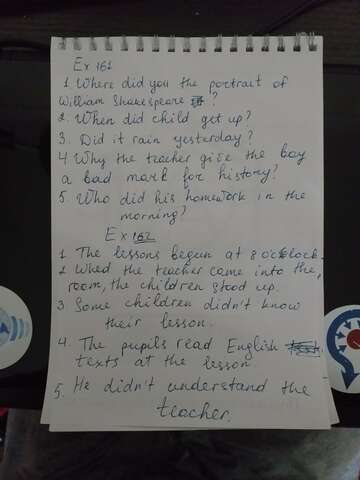 Ex 161
1. Where did you the portrait of
William Shakespeare ?
2. When did child get up?
3. Did it rain yesterday?
4 Why the teacher give the boy
a bad mark for history?
5. Who did his homework in the
morning?
Ex 162
1. The lessons began at 8 o'clock.
2. When the teacher came into the
room, the children stood up.
3 Some children didn't know
their lesson.
4. The pupils read English
texts at the lesson
5. He didn't understand the
teacher.